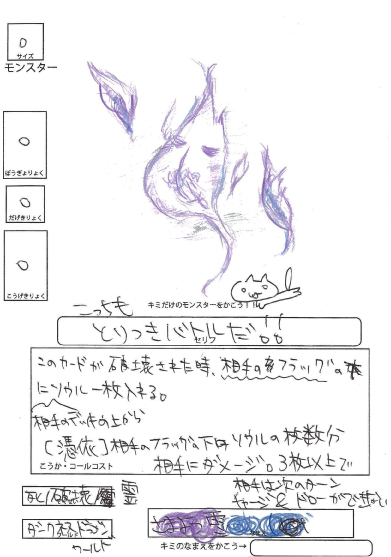 0
サイズ
モンスター
0
ぼうぎょりょく
0
だげきりょく
0
こうげきりょく
キミだけのモンスターをかこう!!
こっちも
とりつきバトルだ!!
セリフ
このカードが破壊された時、相手のフラッグの下
にソウル一枚入れる。
相手のデッキの上から
[憑依]相手のフラッグの下のソウルの枚数分
相手にダメージ。3枚以上で
相手は次のターン
チャージ&ドローができない
こうか・コールコスト
破壊 霊
ダークネスドラゴン
ワールド
霊
キミのなまえをかこう→